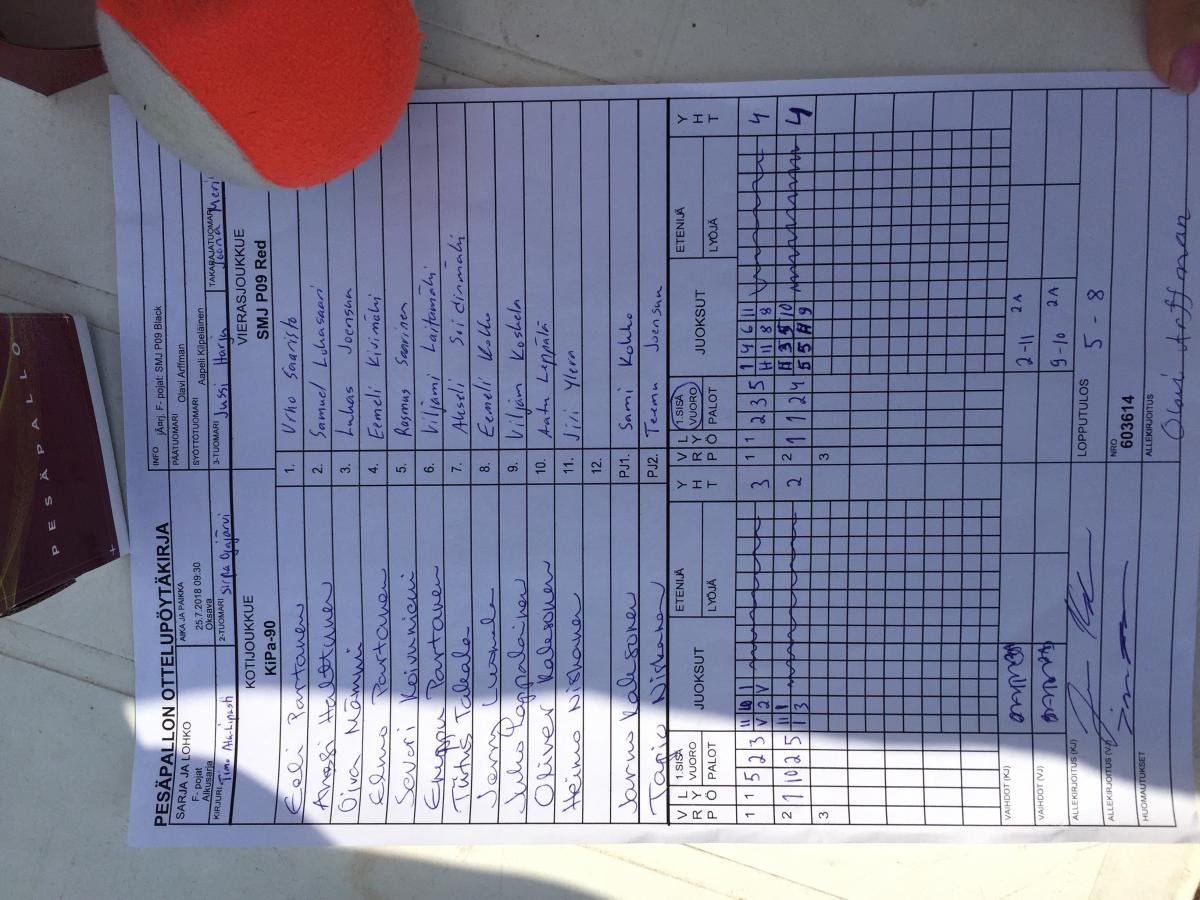 PESÄPALLO
PESÄPALLON OTTELUPÖYTÄKIRJA
SARJA JA LOHKO
F- pojat
Alkusarja
AIKA JA PAIKKA
25.7.2018 09:30
Oksava
INFO järj. F- pojat: SMJ P09 Black
PÄÄTUOMARI Olavi Arffman
SYÖTTÖTUOMARI Aapeli Kilpeläinen
KIRJURI Timo
2-TUOMARI Sirpa Ojajärvi
3-TUOMARI Jussi Harju
TAKARAJATUOMARI Joona Meri
KOTIJOUKKUE
KiPa-90
VIERASJOUKKUE
SMJ P09 Red
Eeli Partanen 1. Urho Saaristo
Anssi Halttunen 2. Samuel Lohasaari
Oiva Mämmi 3. Luhas Joensuu
Elmo Partanen 4. Eemeli Kivimäki
Saveri Koivuniemi 5. Rasmus Saarinen
Eemppu Partanen 6. Viljami Laitamäki
Takala 7. Akseli Soidinmäki
8. Eemeli Kokko
9. Viljam Koskela
Oliver Kalesonen 10. Aatu Leppälä
Heimo Niskanen 11. Jiri Ylen
12.
Jarmo PJ1. Sami Kokko
Tapio Niskanen PJ2. Teemu Joensuu
V R P L Y Ö 1.SISÄ VUORO PALOT JUOKSUT ETENIJÄ LYÖJÄ Y H T V R P L Y Ö 1.SISÄ VUORO PALOT JUOKSUT ETENIJÄ LYÖJÄ Y H T
1 1 5 2 3 3 1 1 2 3 5 1 4 6 11 4
11 8 8
2 1 10 2 5 2 2 1 1 2 4 4
1 3
3 3
VAIHDOT (KJ) 2-11 2A
VAIHDOT (VJ) 9-10 2A
ALLEKIRJOITUS (KJ) LOPPUTULOS 5 - 8
ALLEKIRJOITUS (VJ) NRO 603614
HUOMAUTUKSET ALLEKIRJOITUS Olavi Arffman